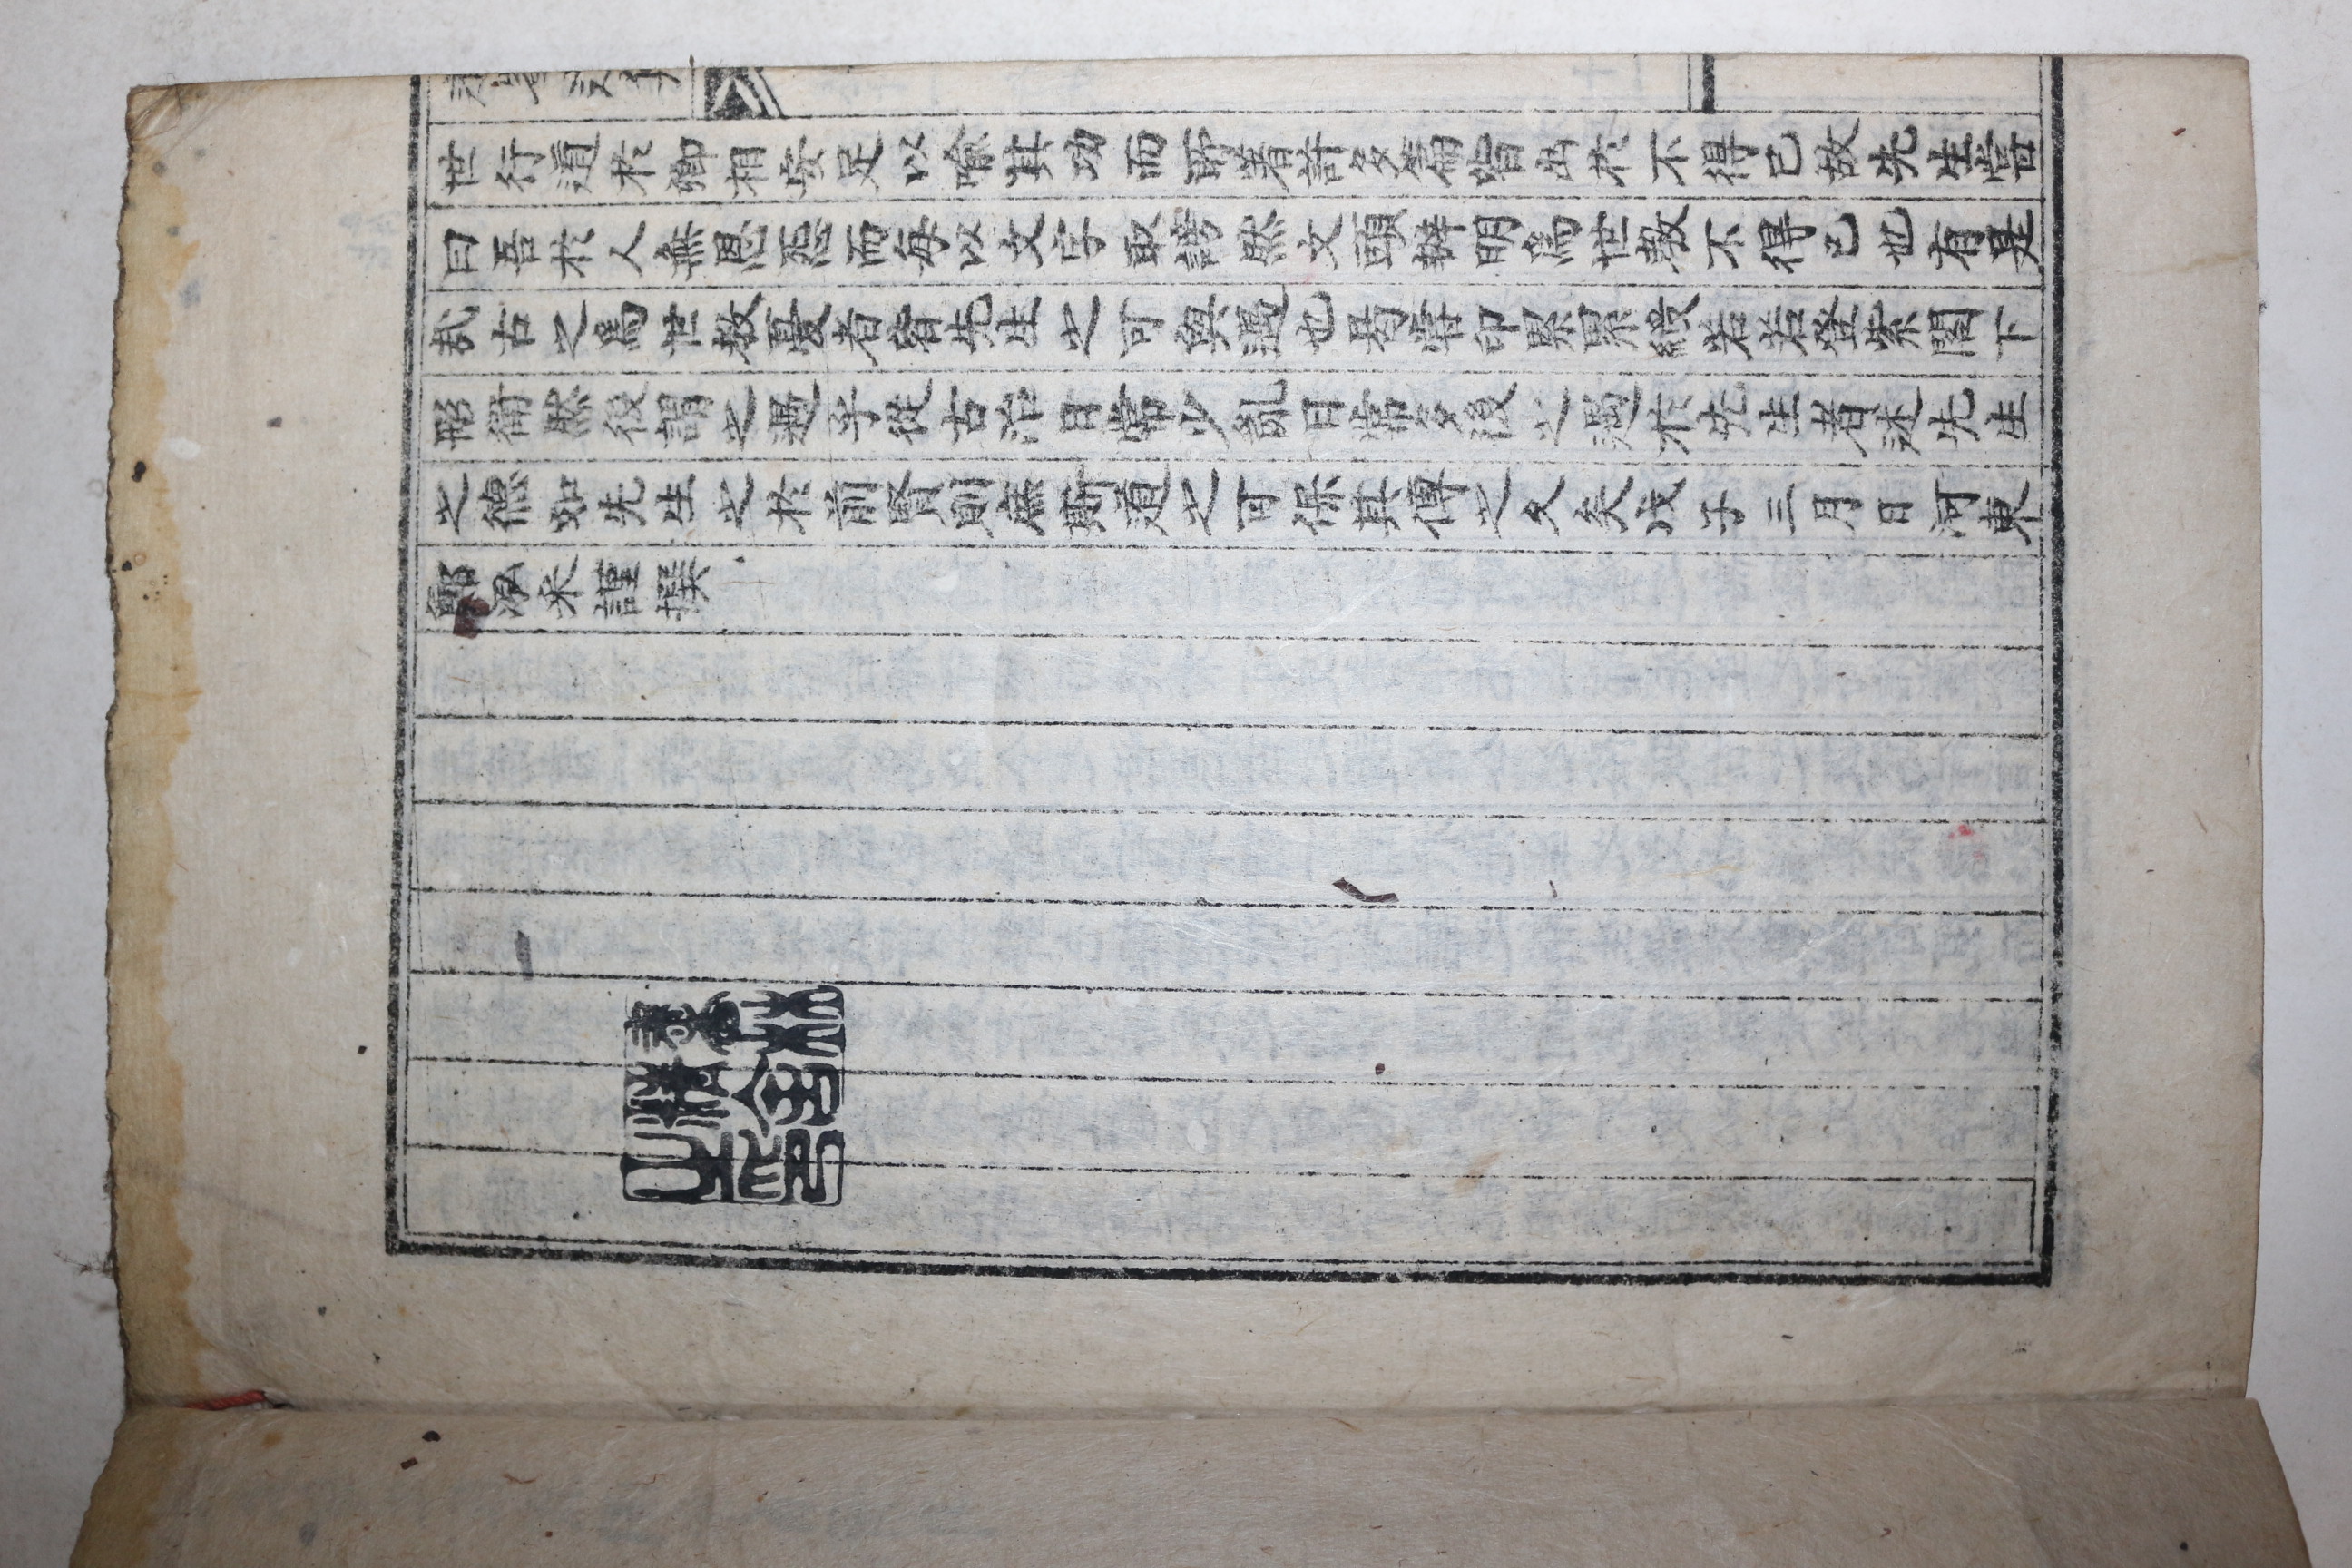 遺集
世行道於卿相安足以喩其功而所著許多篇皆出於不得已故先生嘗
曰吾於人無恩怨而每以文字取謗然文頭辨明爲世教不得已也有是
哉古之爲世教憂者皆先生之可與遇也曷嘗印累累綬若若登紫閣下
彤衢然後謂之遇乎從古治日常少亂日常多後之遇於先生者述先生
之德如先生之於前賢則庶斯道之可保其傳之久矣戊子三月日河東
鄭泓采謹撰
書林
精舍
之印